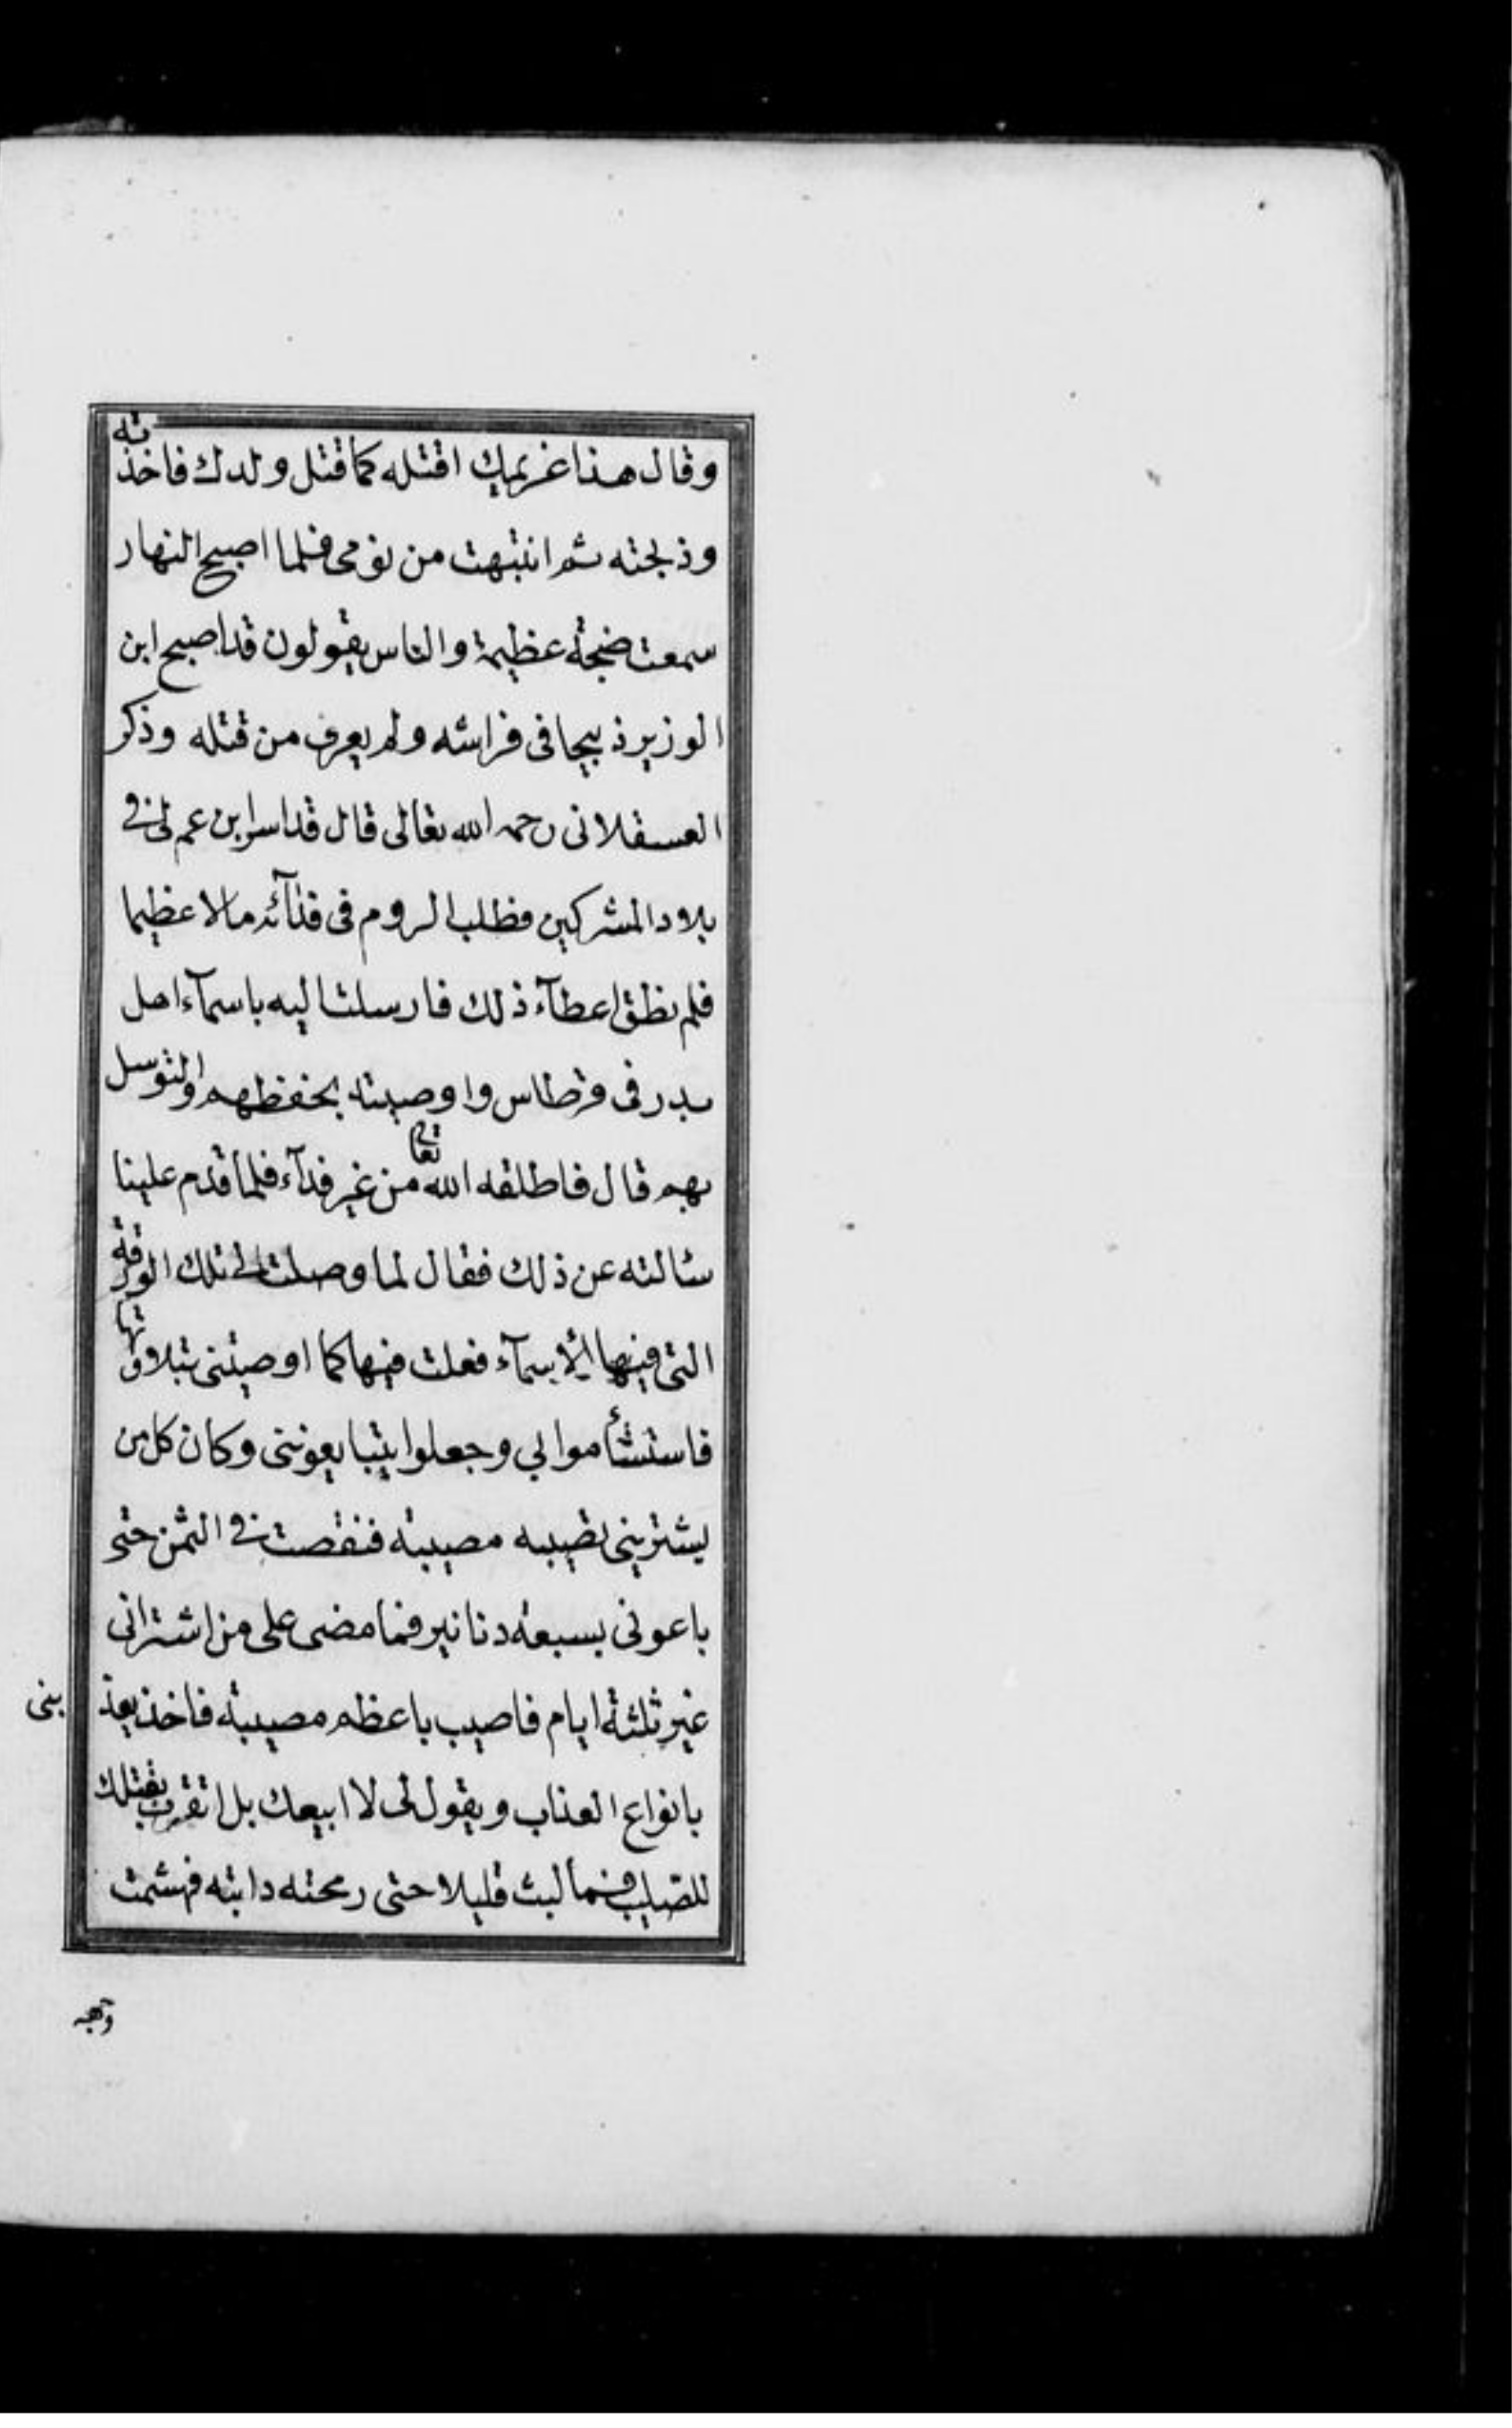 وقال هذا غريمك اقتله كما قتل ولدك فاخذته
وذبحته ثم انتبهت من نومى فلما اصبح النهار
سمعت ضجة عظيمة والناس يقولون قد اصبح ابن
الوزير ذبيحا فى فراشه ولم يعرف من قتله وذكر
العسقلانى رحمه الله تعالى قال قد اسر ابن عم لى فى
بلاد المشركين فطلب الروم فى فدآئه مالا عظيما
فلم نطق اعطآء ذلك فارسلت اليه باسمآء اهل
بدر فى قرطاس واوصيته بحفظهم والتوسل
بهم قال فاطلقه الله تعالى من غير فدآء فلما قدم علينا
سئالته عن ذلك فقال لما وصلت الى تلك الورقة
التى فيها الأسمآء فعلت فيها كما اوصيتنى بتلاوتها
فاستشأموا بي وجعلوا يتبايعوننى وكان كل من
يشترينى تصيبه مصيبة فنقصت فى الثمن حتى
باعونى بسبعة دنانير فما مضى على من اشترانى
غير ثلثة ايام فاصيب باعظم مصيبة فاخذ يعذبنى
بانواع العذاب ويقول لى لا ابيعك بل اتقرب بقتلك
للصليب فما لبث قليلا حتى رمحته دابته فهشمت
وجهه